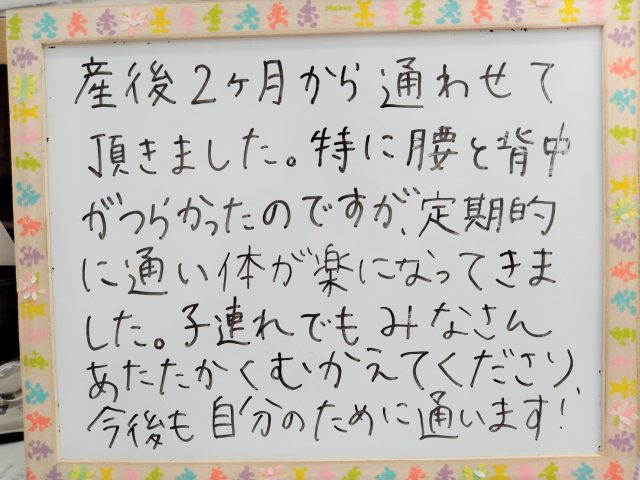 Mickey
産後2ヶ月から通わせて
頂きました。特に腰と背中
がつらかったのですが、定期的
に通い体が楽になってきま
した。子連れでもみなさん
あたたかくむかえてくださり、
今後も自分のために通います!